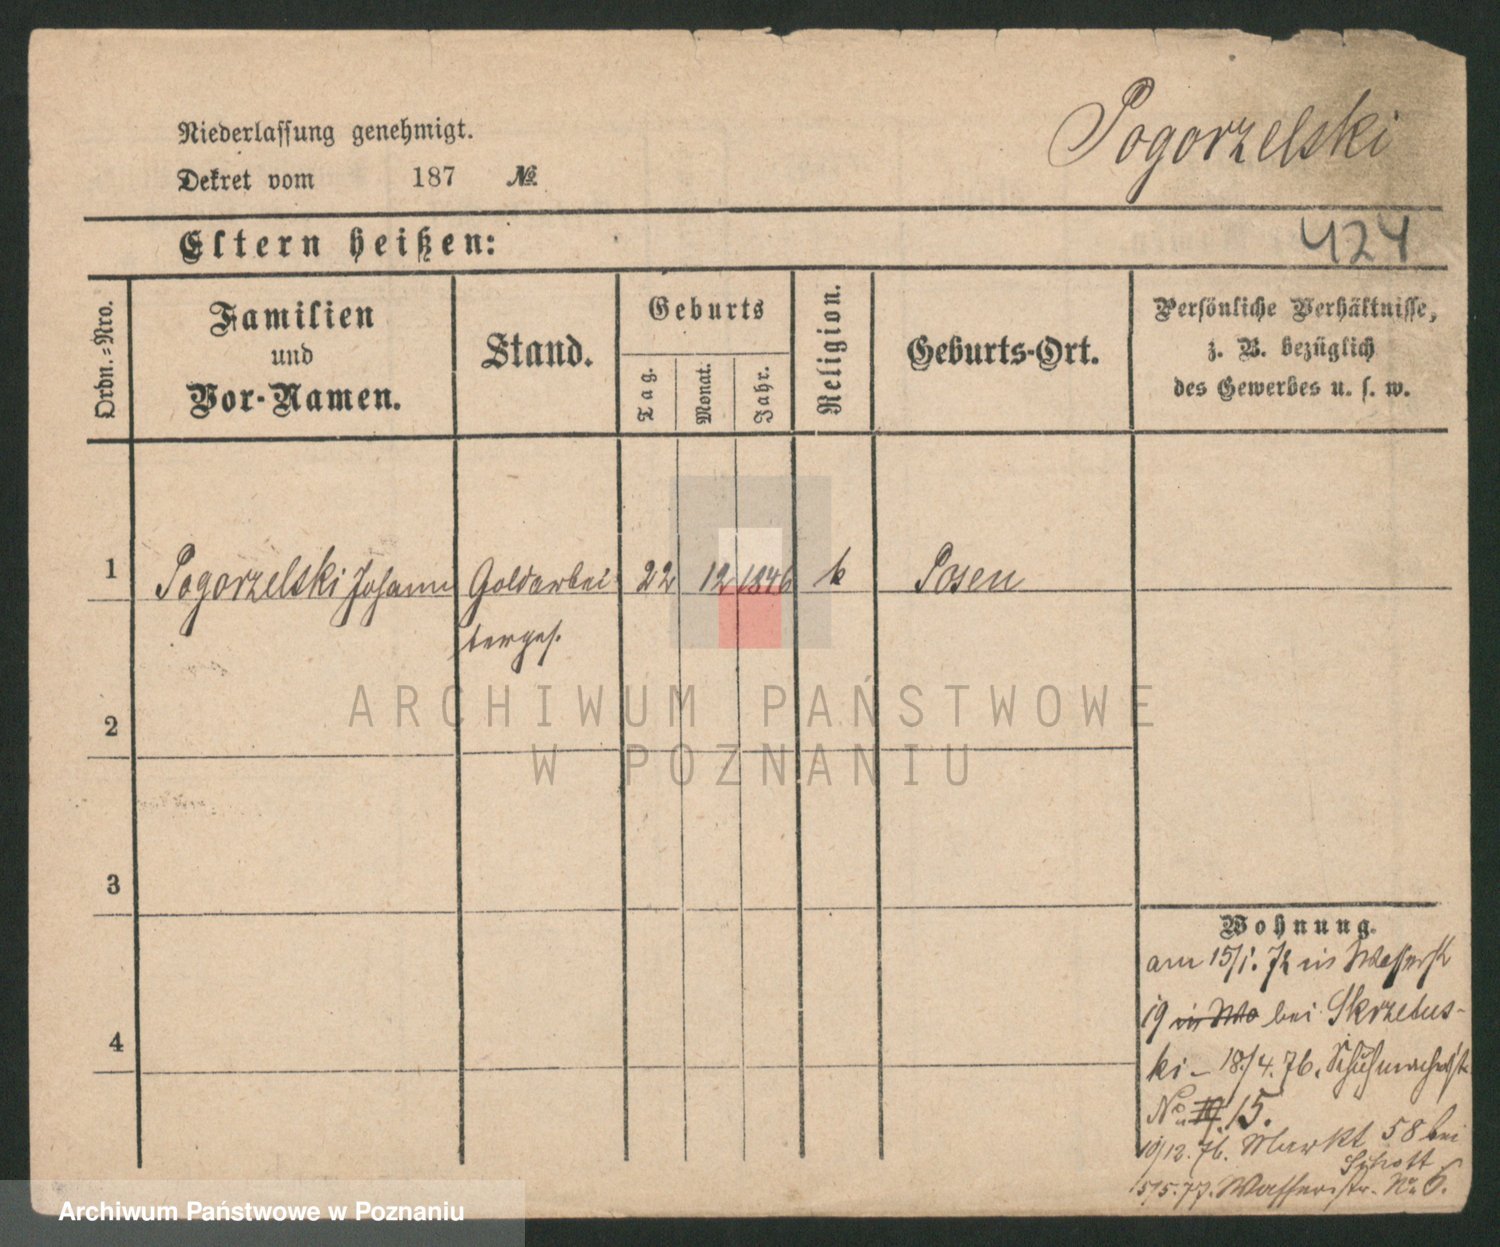 Niederlassung genehmigt.
Dekret vom 187 No.
Pogorzelski
Eltern heißen:
424
Ordn.=Nro.
Familien
und
Vor-Namen.
Stand.
Geburts
Tag.
Monat.
Jahr.
Religion.
Geburts-Ort.
Persönliche Verhältnisse,
z. B. bezüglich
des Gewerbes u. s. w.
1 Pogorzelski Johann Goldarbei 22 12 1846 k Posen
terges.
2
3
4
ARCHIWUM PAŃSTWOWE
W POZNANIU
Wohnung.
am 15/1. 72 in Wasserst
19 in Wo bei Skrzetus-
ki - 18/4. 76. Schuhmacherst
No 15.
19/12. 76. Markt 58 bei
Schott
15/5. 77. Wasserstr. No 6.
Archiwum Państwowe w Poznaniu